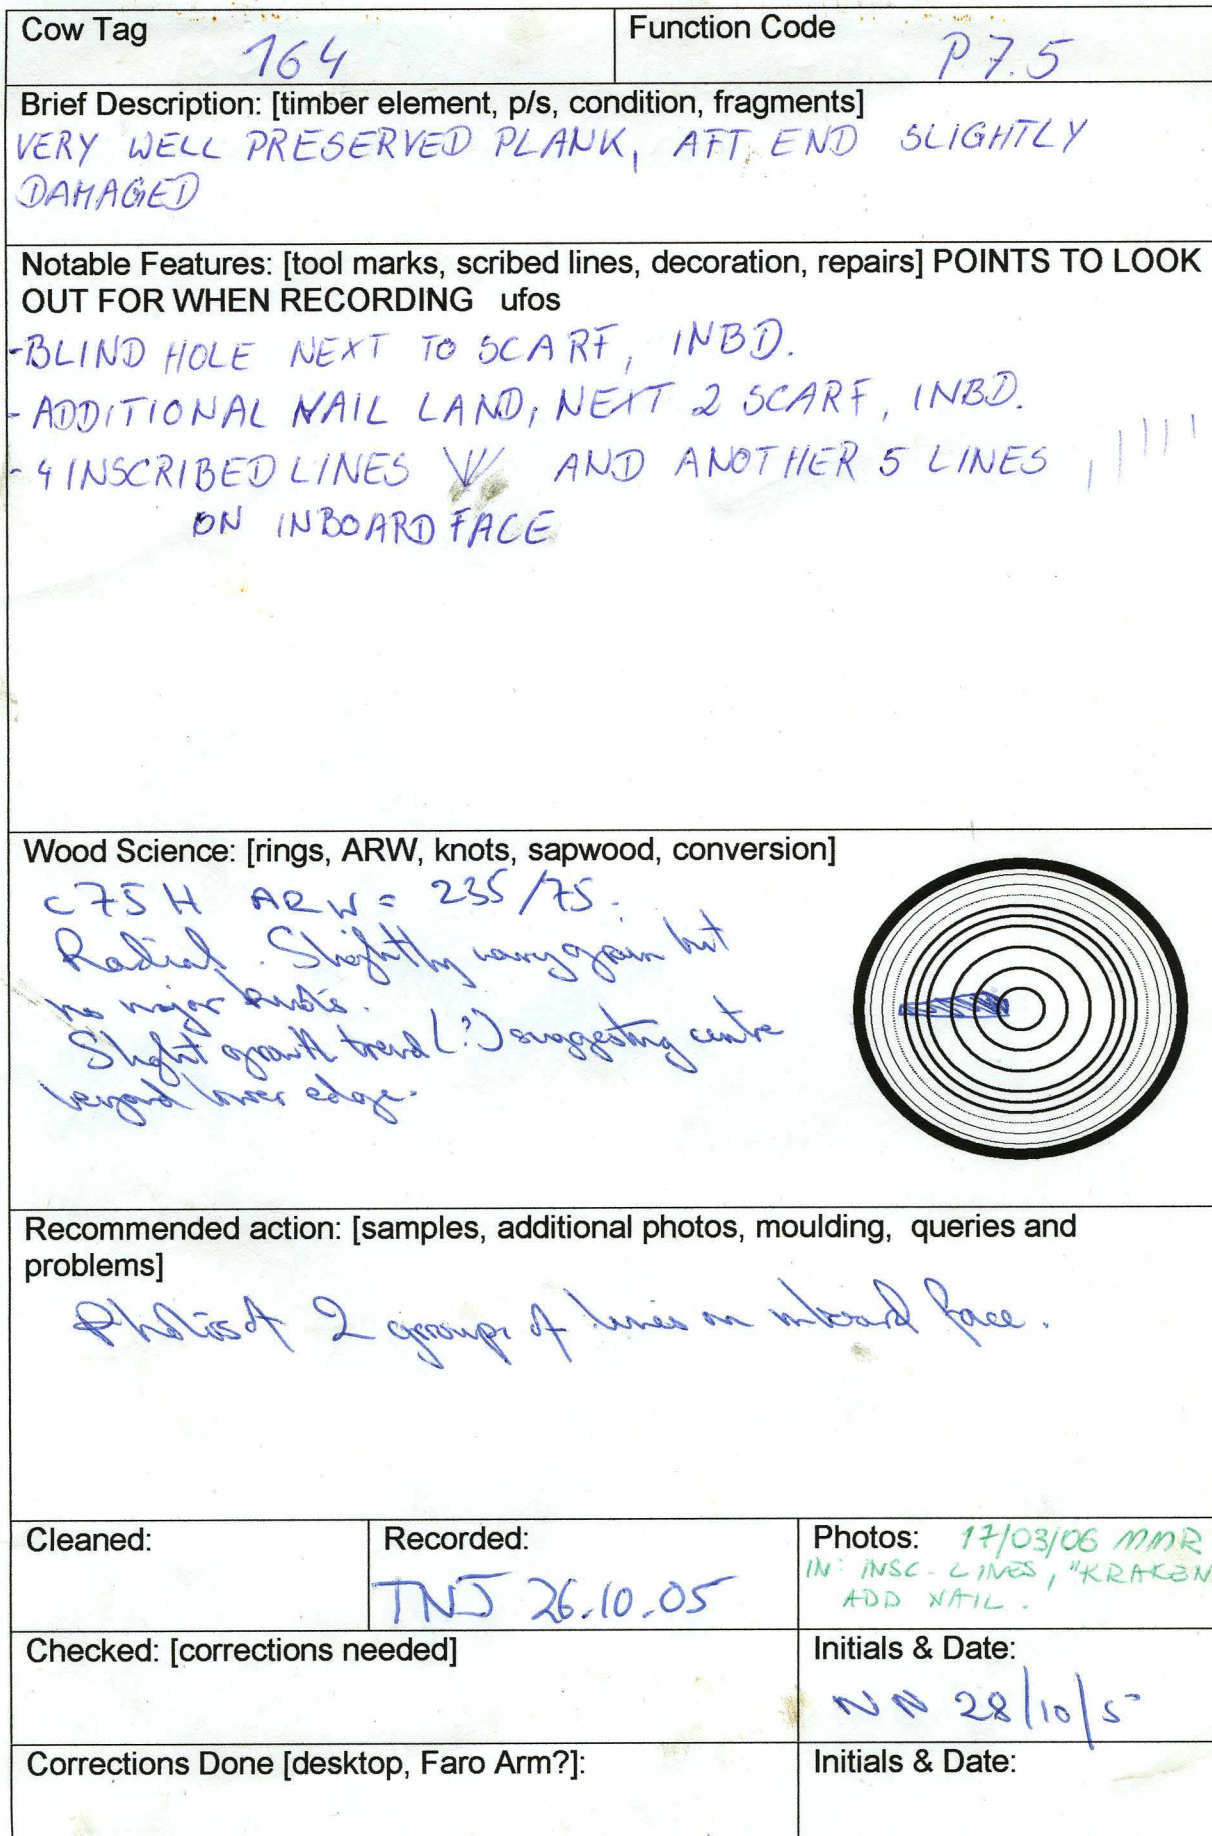 Cow Tag
164
Function Code
P7.5
Brief Description: [timber element, p/s, condition, fragments]
VERY WELL PRESERVED PLANK, AFT END SLIGHTLY
DAMAGED
Notable Features: [tool marks, scribed lines, decoration, repairs] POINTS TO LOOK
OUT FOR WHEN RECORDING ufos
-BLIND HOLE NEXT TO SCARF, INBD.
-ADDITIONAL NAIL LAND, NEXT 2 SCARF, INBD.
-4 INSCRIBED LINES AND ANOTHER 5 LINES
ON INBOARD FACE
Wood Science: [rings, ARW, knots, sapwood, conversion]
c75H ARW = 235/75.
Radial. Slightly wavy grain but
no major knots.
Slight growth trend (?) suggesting centre
beyond lower edge.
Recommended action: [samples, additional photos, moulding, queries and
problems]
Photos of 2 groups of lines on inboard face.
Cleaned:
Recorded:
TNJ 26.10.05
Photos: 17/03/06 MMR
IN: INSC. LINES, "KRAKEN
ADD NAIL.
Checked: [corrections needed]
Initials & Date:
NN 28/10/5
Corrections Done [desktop, Faro Arm?]:
Initials & Date: